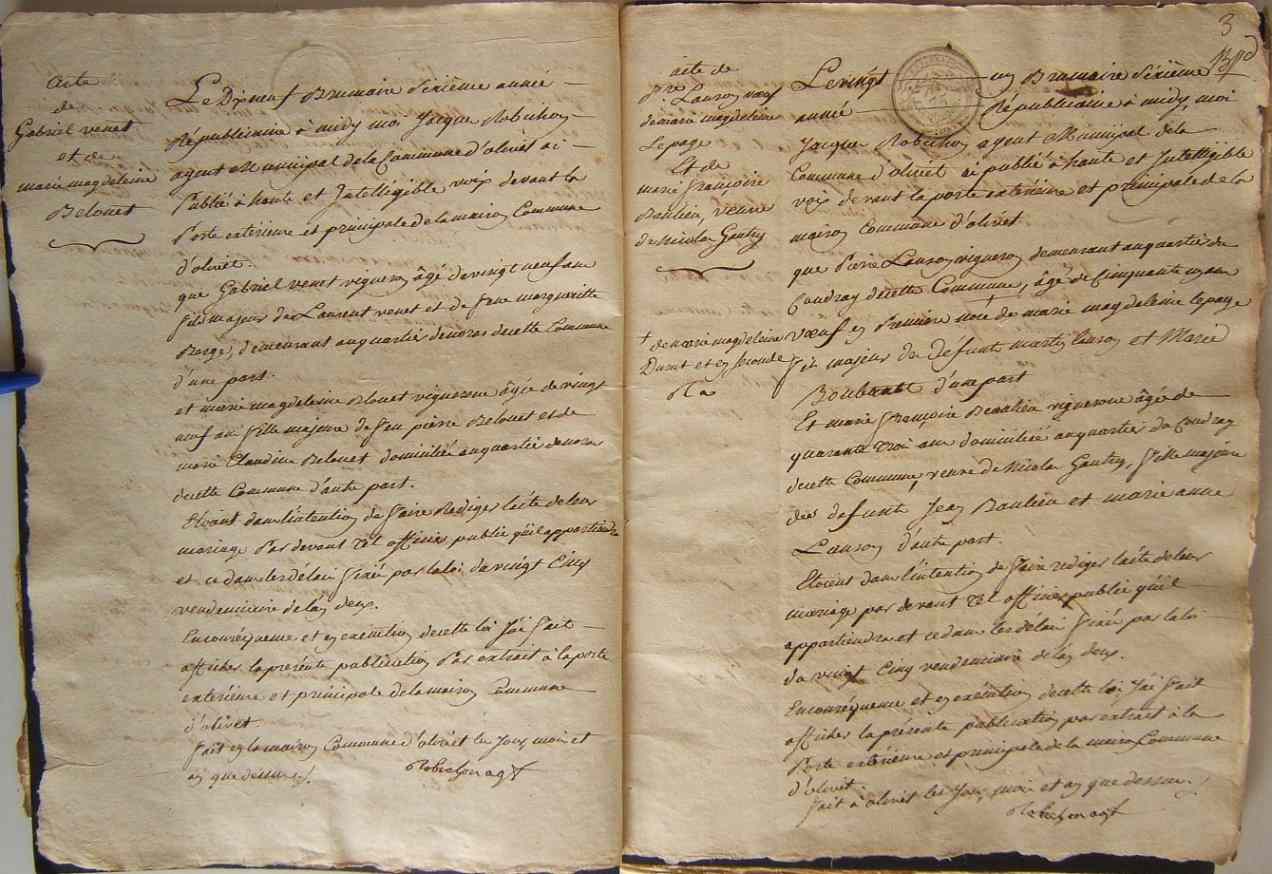 acte
de
Gabriel venet
et de
marie magdeleine
Belouet
Le Dixneuf Brumaire Sixième année
Républicaine à midy moi Jacque Robichon
agent Municipal de la Commune d'olivet ai
Publié à haute et Intelligible voix devant la
Porte extérieure et principale de la maison Commune
d'olivet.
que Gabriel venet vigneron âgé de vingt neuf ans
fils majeur de Laurent venet et de feue margueritte
demeurant au quartier de cette Commune
d'une part.
et marie magdeleine Blouet vigneronne âgée de vingt
neuf ans fille majeure de feu pierre Belouet et de
marie Claudine Belouet domiciliée au quartier
de cette Commune d'autre part.
Etoient dans l'intention de faire Rediger l'acte de leur
mariage Par devant tel officier public qu'il appartiendra
et ce dans les délais fixés par la loi du vingt Cinq
vendemiaire de l'an deux.
En conséquence et en exécution de cette loi J'ai fait
afficher la présente publication Par extrait à la porte
extérieure et principale de la maison Commune
d'olivet
fait en la maison Commune d'olivet les Jour, moi et
an que dessus.
Robichon agt
3
acte de
pre. Lauson vœuf
de marie magdeleine
Lepage
Et de
marie françoise
Baulieu, veuve
de Nicolas Gautry
Le vingt un Brumaire Sixième
année Républicaine à midy, moi
Jacque Robichon agent Municipal de la
Commune d'olivet ai publié à haute et Intelligible
voix devant la porte extérieure et principale de la
maison Commune d'olivet
que Pierre Lauson vigneron demeurant au quartier du
Coudray de cette Commune, âgé de Cinquante un ans
vœuf en Premiere noce de marie magdeleine lepage
+ de marie magdeleine
Durut et en seconde
fils majeur de Défunts martin lauson et Marie
d'une part
Et marie françoise Beaulieu vigneronne âgée de
quarante trois ans domiciliée au quartier du Coudray
de cette Commune, veuve de Nicolas Gautry, fille majeure
des defunts Jean Baulieu et marie anne
Lauson d'autre part.
Etoient dans l'intention de faire rediger l'acte de leur
mariage par devant tel officier public qu'il
appartiendra et ce dans les délais fixés par la loi
du vingt Cinq vendemiaire de l'an deux.
En conséquence et en exécution de cette loi J'ai fait
afficher la présente publication par extrait à la
Porte extérieure et principale de la maison Commune
d'olivet.
fait à olivet les Jour, moi et an que dessus.
Robichon agt